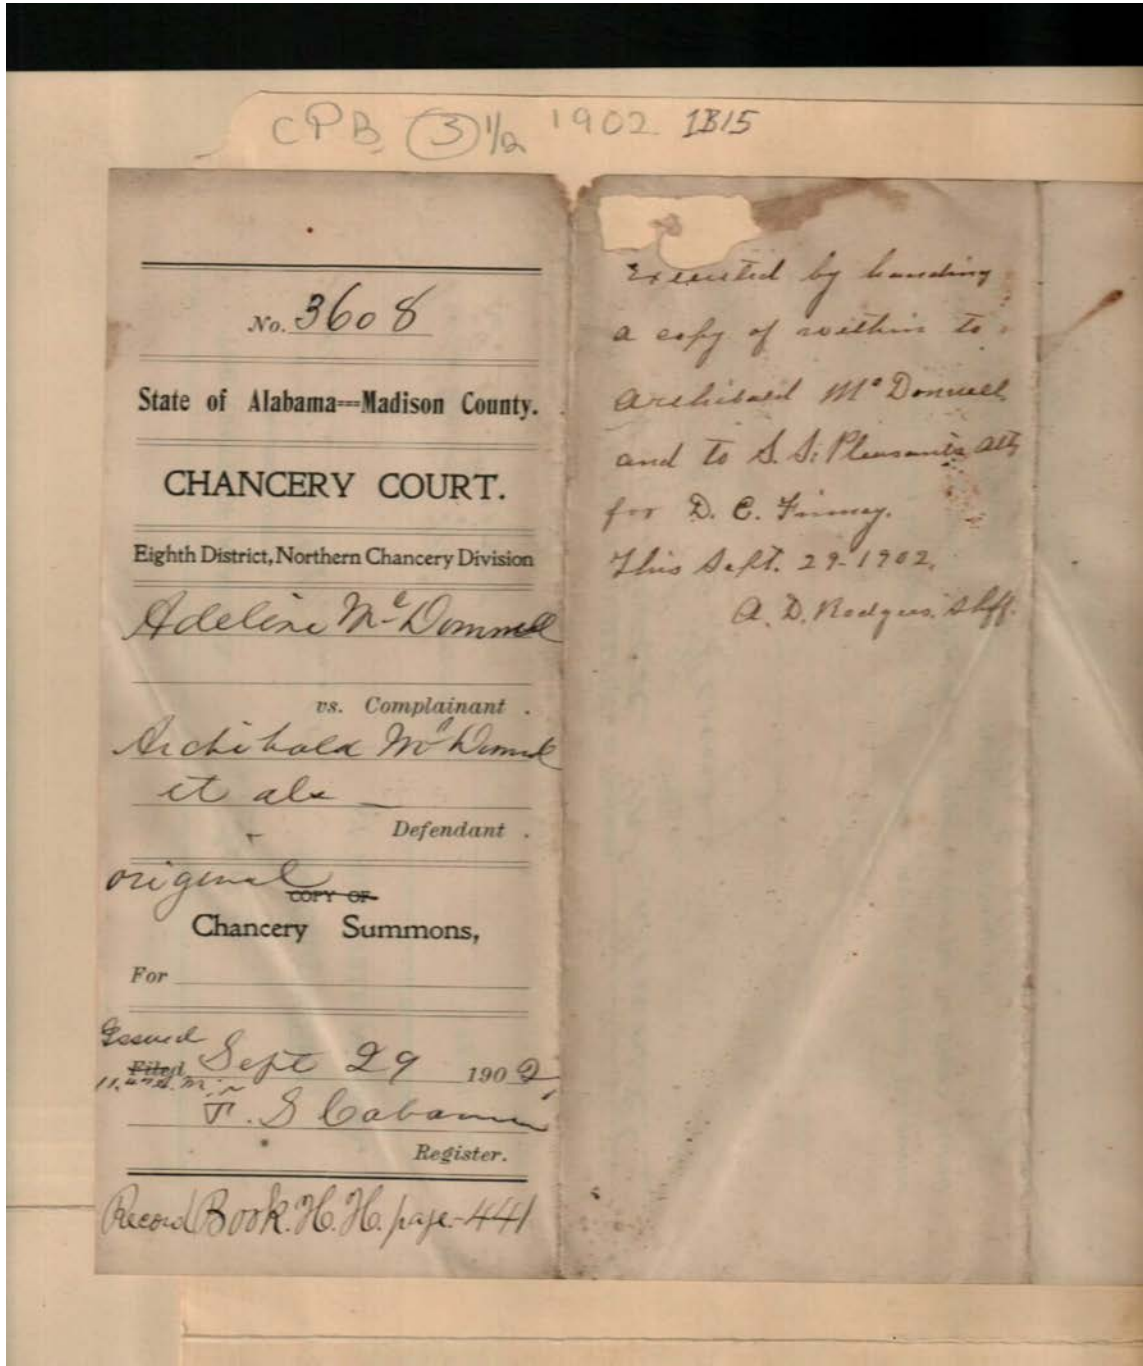 CPB 3 1/2 1902 1B15
No. 3608
State of Alabama--Madison County.
CHANCERY COURT.
Eighth District, Northern Chancery Division
Adeline McDonnell
vs. Complainant .
Archibald McDonnell
et als
Defendant .
original COPY OF
Chancery Summons,
For
Issued
Filed Sept 29 1902
A.M.
Register.
Record Book. H. H. page-441
Executed by handing
a copy of within to
Archibald McDonnell
and to S. S. Pleasants Atty
for D. C. Finney.
This Sept. 29-1902.
A. D. Rodgers. Shff.